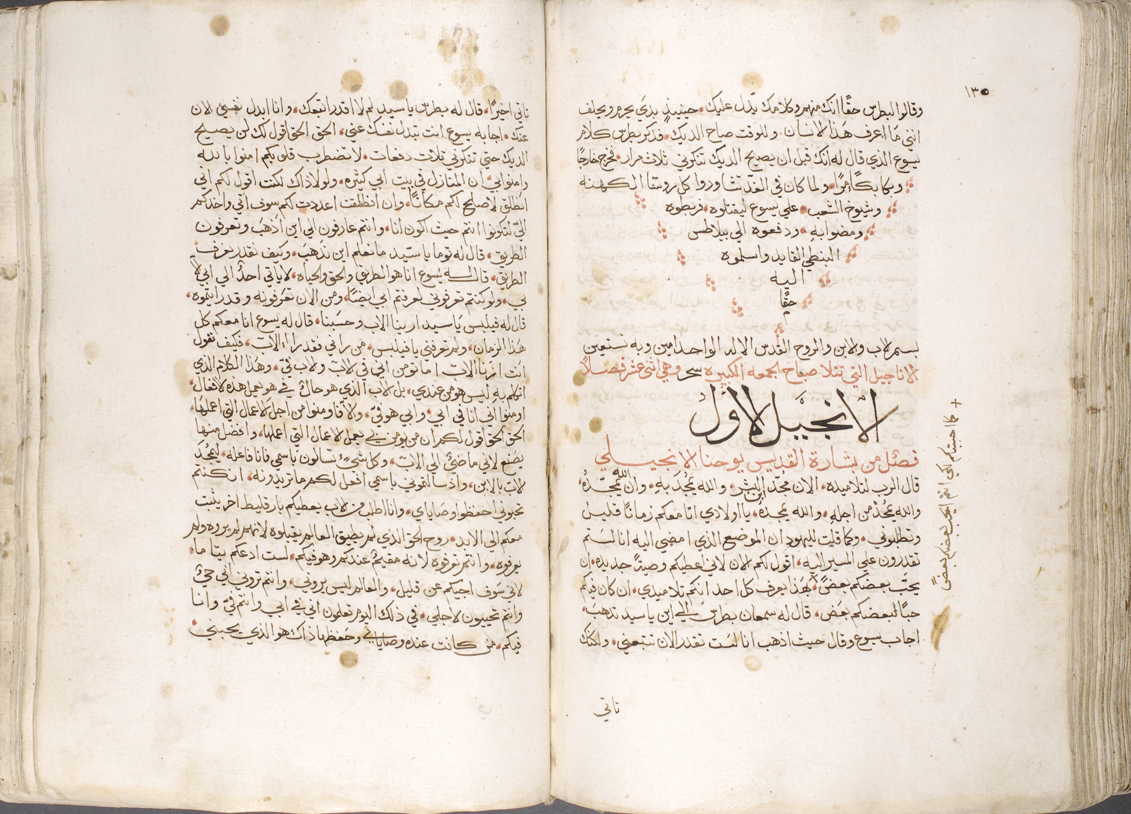 ١٣٥
وقالوا لبطرس حقًا انك منهم وكلامك يدل عليك. حينيذٍ بدى يحرم ويحلف
انني ما اعرف هذا الانسان. وللوقت صاح الديك. فذكر بطرس كلام
يسوع الذي قال له انك قبل ان يصيح الديك تنكرني ثلاث مرار. فخرج خارجًا
وبكا بكًا مرًا. ولما كان في الغد تشاوروا كل روسًا الكهنه
وشيوخ الشعب. على يسوع ليقتلوه. فربطوه
ومضوا به. ودفعوه الى بيلاطس
البنطي القايد واسلموه
اليه
حقًا
بسم لاب ولابن والروح القدس الاله الواحد امين وبه نستعين
لاناجيل التي تتلا صباح الجمعه الكبيره سحر وهي اثني عشر فصلًا
الانجيل الاول
فصل من بشارة القديس يوحنا الانجيلي
قال الرب لتلاميذه. الان مجد ابن البشر. والله يمجد به. وان الله يمجد به
والله يمجد من اجله. والله يمجده. يا اولادي انا معكم زمانًا قليل
وتطلبوني. وكما قليت لليهود ان الموضع الذي امضي اليه انا لستم
تقدرون على المسير اليه. اقول لكم لان لاني اعطيكم وصيةً جديده. ان
يحب بعضكم بعضً. بهذا يعرف كل احد انكم تلاميذي. ان كان فيكم
حبًا لبعضكم بعض. قال له سمعان بطرس الى اين يا سيد تذهب.
اجاب يسوع وقال حيث اذهب انا لست تقدر الان تتبعني. ولكنك
تاتي
+ كما احببتكم لكي انتم يحب بعضكم بعضً
تاتي اخيرًا. قال له بطرس يا سيد لم لا اقدر اتبعك. وانا ابدل نفسي لان
عنك. اجابه يسوع انت تبدل نفسك عني. الحق الحق اقول لك لن يصيح
الديك حتى تنكرني ثلاث دفعات. لا تضطرب قلوبكم امنوا بالله
وامنوا بي. ان المنازل في بيت ابي كثيره. ولولا ذاك لكنت اقول لكم اني
انطلق لاصلح لكم مكانًا. وان انطلقت اعددت لكم سوف اتي واخذكم
اليّ لتكونوا انتم حيت اكون انا. وانتم عارفون الى اين اذهب وتعرفون
الطريق. قال له توما يا سيد ما نعلم اين تذهب. وكيف نقدر نعرف
الطريق. قال له يسوع انا هو الطريق والحق والحياه. لا ياتي احدٌ الى ابي الا
بي. ولو كنتم تعرفوني لعرفتم ابي ايضًا. ومن الان تعرفونه وقد رايتموه.
قال له فيلبس يا سيد ارينا الاب وحسبنا. قال له يسوع انا معكم كل
هذا الزمان. ولم تعرفني يا فيلبس. من راني فقد راء الاب. فكيف تقول
انت ارنا الاب اما تومن اني في لاب. ولاب فيّ. وهذا الكلام الذي
اتكلم به ليس هو من عندي. بل لاب الذي هو حالٌ في هو يعمل هذه لافعال.
اومنوا اني انا في ابي. وابي هو فيّ. ولا فاومنوا من اجل لاعمال التي اعملها.
الحق الحق اقول لكم ان من يومن بي يعمل لاعمال التي اعملها. وافضل منها
يصنع لاني ماضيٌ الى الاب. وكل شيٌ تسالون باسمي فانا فاعله. ليمجد
لاب بالابن. واذ سالتموني باسمي افعل لكم ما تريدونه. ان كنتم
تحبوني احفظوا وصاياي. وانا اطلب من لاب يعطيكم بارقليط اخر يثبت
معكم الى الابد. روح الحق الذي لم يطيق العالم يقبلوه لانهم لم يروه ولم
يعرفوه. وانتم تعرفوه لانه مقيمٌ عندكم وهو فيكم. لست ادعكم يتاما.
لاني سوف اجيكم عن قليل. والعالم ليس يروني. وانتم تروني اني حيٌ
وانتم تحيون لاجلي. في ذلك اليوم تعلمون اني في ابي وانتم فيّ وانا
فيكم. من كانت عنده وصاياي وحفظها ذاك هو الذي يحبني.